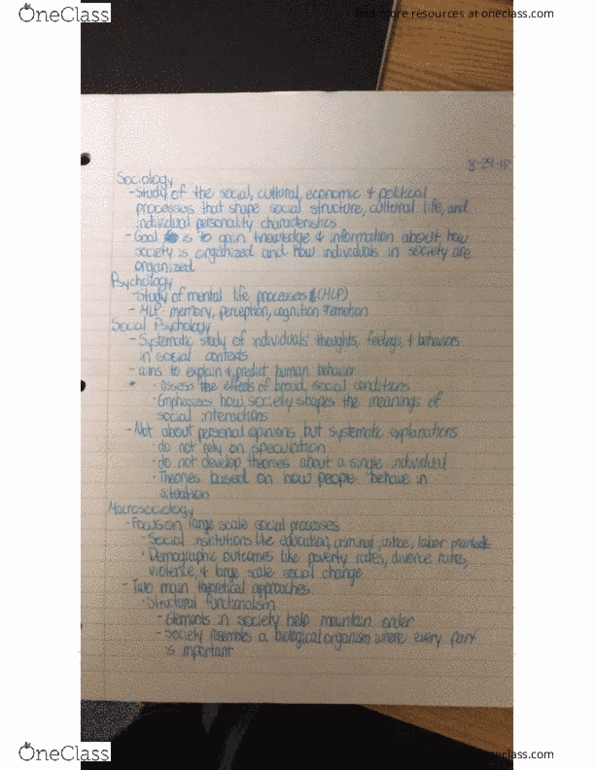 OneClass
find more resources at oneclass.com
8-29-18
Sociology
- Study of the social, cultural, economic & political
processes that shape social structure, cultural life, and
individual personality characteristics
- Goal is to gain knowledge & information about how
society is organized and how individuals in society are
organized
Psychology
- Study of mental life processes (MLP)
- MLP: memory, perception, cognition & emotion
Social Psychology
- Systematic study of individuals' thoughts, feelings, & behaviors
in social contexts
- aims to explain & predict human behavior
· assess the effects of broad social conditions
· Emphasizes how society shapes the meanings of
social interactions
- Not about personal opinions but systematic explanations
· do not rely on speculation
· do not develop theories about a single individual
· Theories based on how people behave in
situation
Macrosociology
- Focus on large scale social processes
· Social institutions like education, criminal justice, labor markets
· Demographic outcomes like poverty rates, divorce rates,
violence, & large scale social change
- Two main theoretical approaches
· Structural functionalism
- Elements in society help maintain order
- Society resembles a biological organism where every part
is important
OneClass
find more resources at oneclass.com